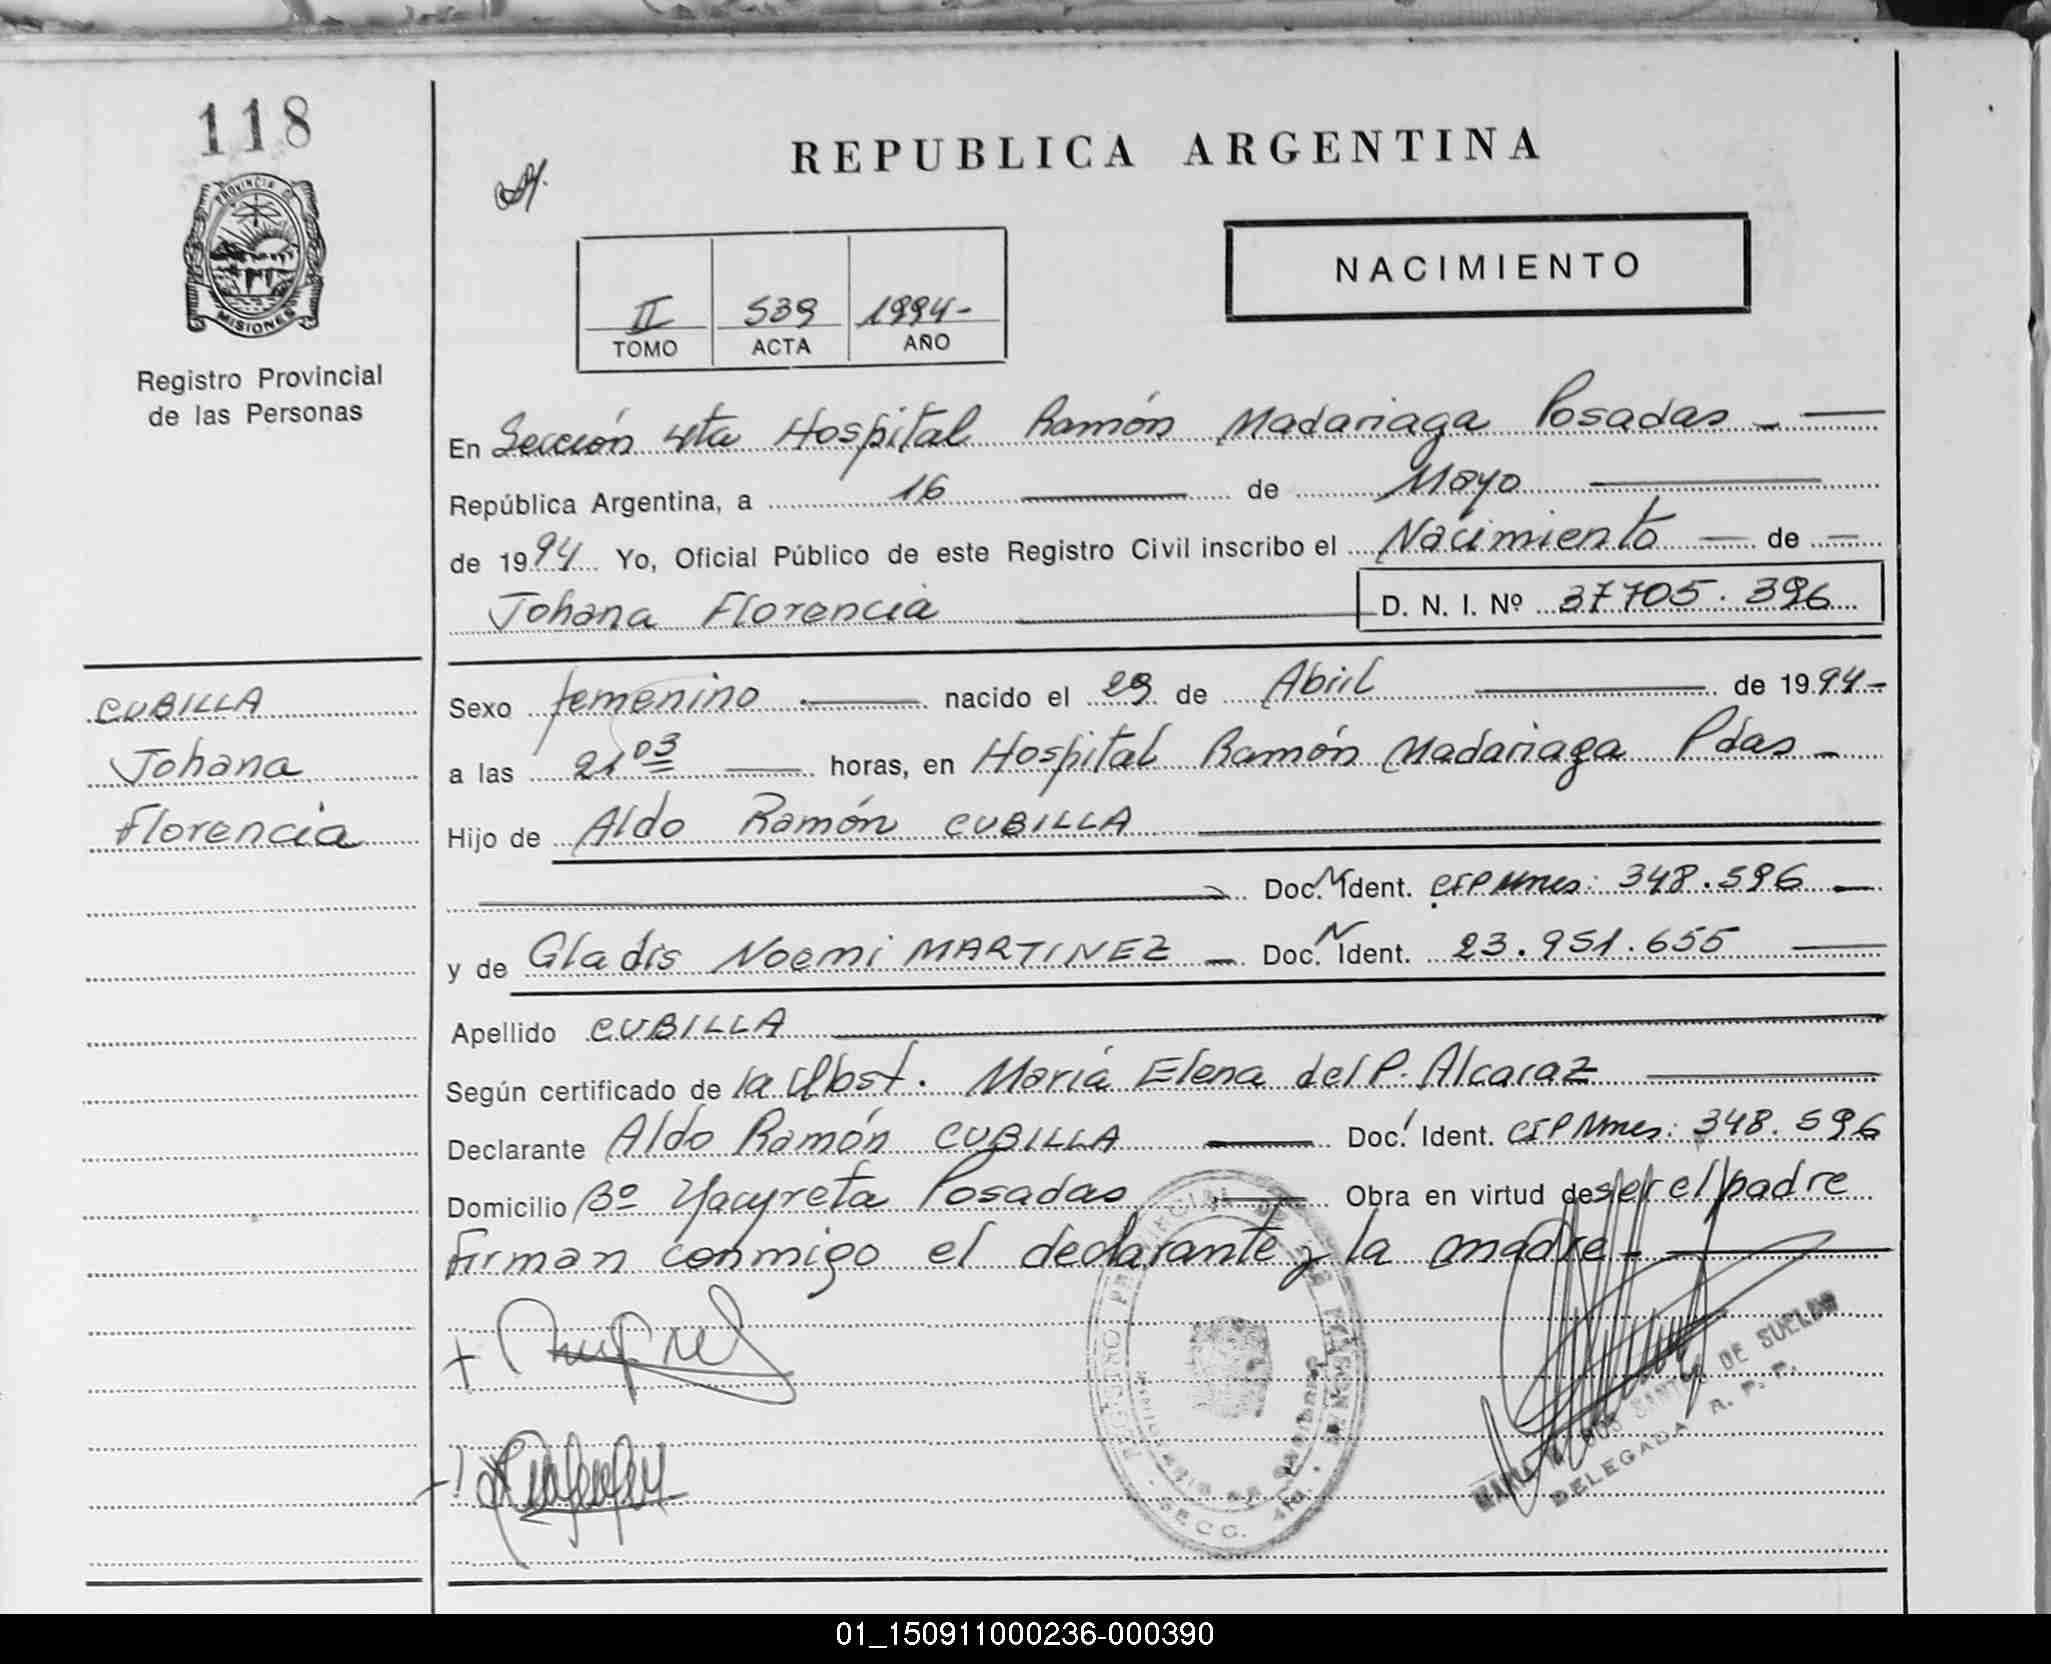 118
PROVINCIA D
MISIONES
Registro Provincial
de las Personas
REPUBLICA ARGENTINA
NACIMIENTO
II 539 1994-
TOMO ACTA AÑO
En Sección 4ta Hospital Ramón Madariaga Posadas -
República Argentina, a 16 de Mayo
de 1994 Yo, Oficial Público de este Registro Civil inscribo el Nacimiento de
Johana Florencia D. N. I. Nº 37705.396
CUBILLA
Johana
Florencia
Sexo femenino nacido el 29 de Abril de 1994-
a las 21 03 horas, en Hospital Ramón Madariaga Pdas -
Hijo de Aldo Ramón CUBILLA
Doc. Ident. CIP Mnes: 348.596
y de Gladis Noemi MARTINEZ Doc. N Ident. 23.951.655
Apellido CUBILLA
Según certificado de la Obst. María Elena del P. Alcaraz
Declarante Aldo Ramón CUBILLA Doc. Ident. CIP Mnes: 348.596
Domicilio Bº Yacyreta Posadas Obra en virtud de ser el padre
Firman conmigo el declarante y la madre -
SECC. 4ta.
DE SUELDO
DELEGADA R. P. P.
01_150911000236-000390